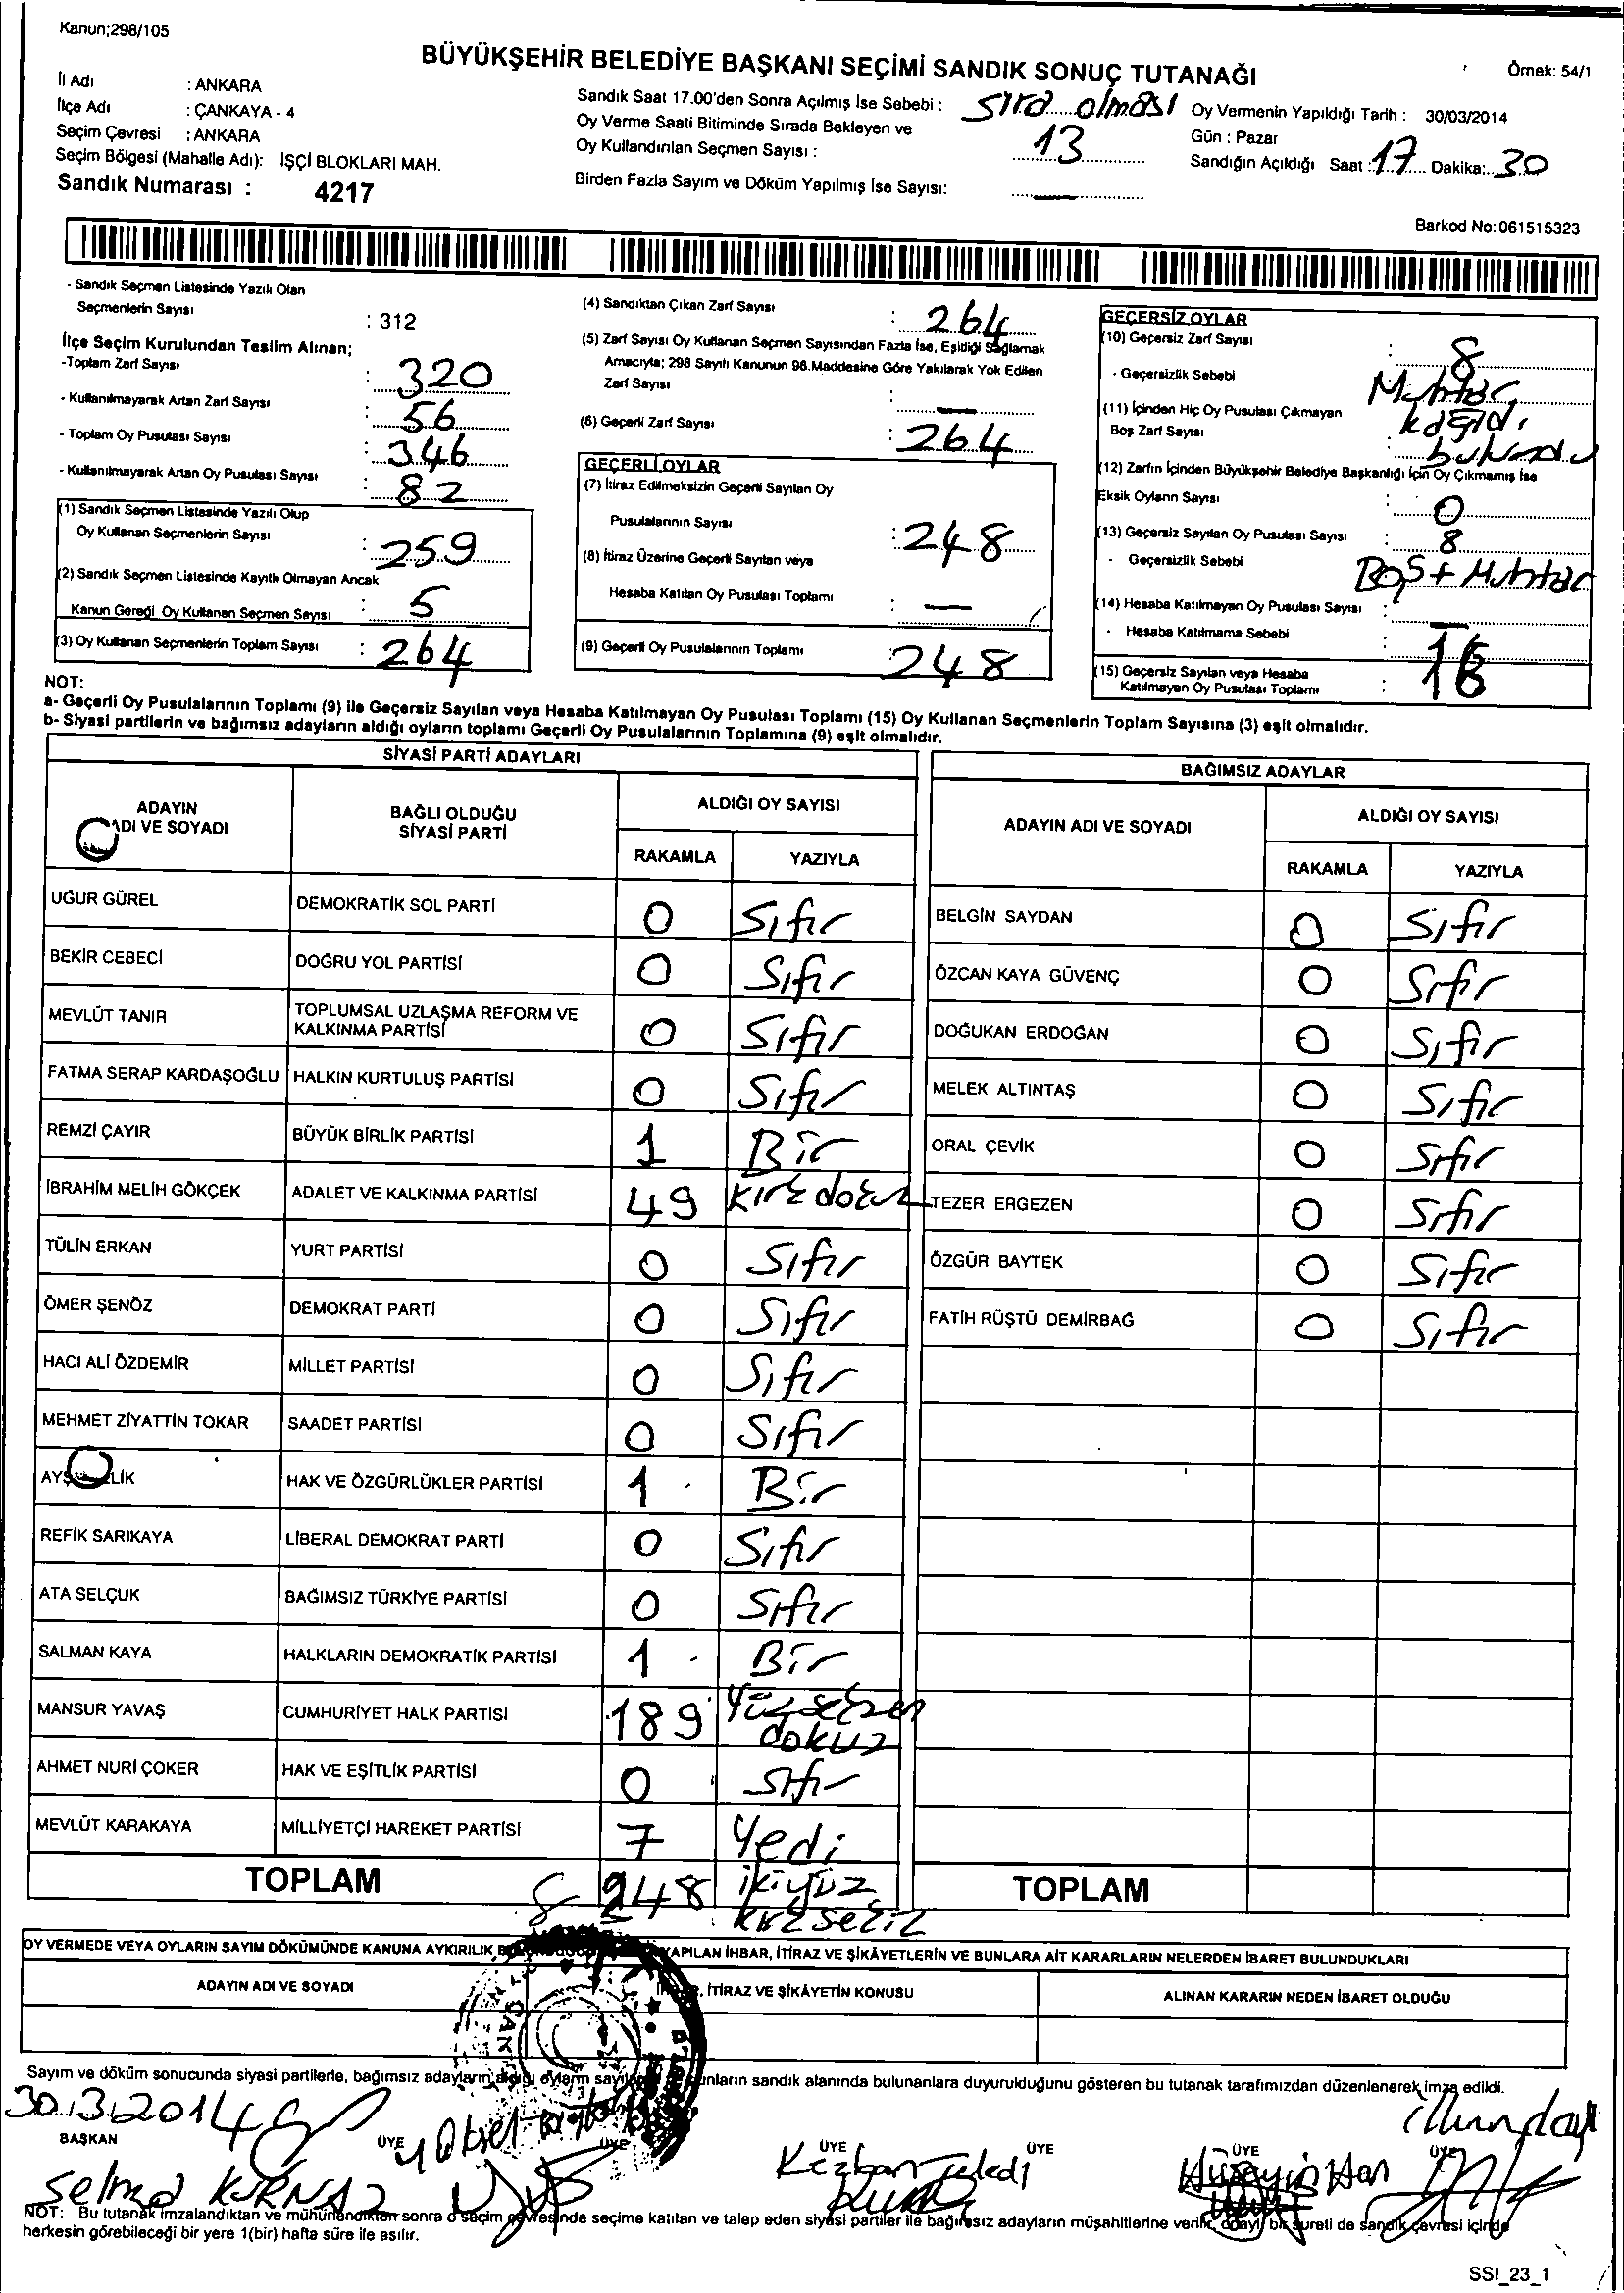 Kanun;298/105
BÜYÜKŞEHİR BELEDİYE BAŞKANI SEÇİMİ SANDIK SONUÇ TUTANAĞI
Örnek: 54/1
İl Adı : ANKARA
İlçe Adı : ÇANKAYA - 4
Seçim Çevresi : ANKARA
Seçim Bölgesi (Mahalle Adı): İŞÇİ BLOKLARI MAH.
Sandık Numarası : 4217
Sandık Saat 17.00'den Sonra Açılmış İse Sebebi : Sıra olması
Oy Verme Saati Bitiminde Sırada Bekleyen ve
Oy Kullandırılan Seçmen Sayısı : 13
Birden Fazla Sayım ve Döküm Yapılmış İse Sayısı: —
Oy Vermenin Yapıldığı Tarih : 30/03/2014
Gün : Pazar
Sandığın Açıldığı Saat : 17 Dakika: 30
Barkod No: 061515323
- Sandık Seçmen Listesinde Yazılı Olan
Seçmenlerin Sayısı : 312
İlçe Seçim Kurulundan Teslim Alınan;
-Toplam Zarf Sayısı : 320
- Kullanılmayarak Artan Zarf Sayısı : 56
- Toplam Oy Pusulası Sayısı : 346
- Kullanılmayarak Artan Oy Pusulası Sayısı : 82
(1) Sandık Seçmen Listesinde Yazılı Olup
Oy Kullanan Seçmenlerin Sayısı : 259
(2) Sandık Seçmen Listesinde Kayıtlı Olmayan Ancak
Kanun Gereği Oy Kullanan Seçmen Sayısı : 5
(3) Oy Kullanan Seçmenlerin Toplam Sayısı : 264
(4) Sandıktan Çıkan Zarf Sayısı : 264
(5) Zarf Sayısı Oy Kullanan Seçmen Sayısından Fazla İse, Eşitliği Sağlamak
Amacıyla; 298 Sayılı Kanunun 98.Maddesine Göre Yakılarak Yok Edilen
Zarf Sayısı : —
(6) Geçerli Zarf Sayısı : 264
GEÇERLİ OYLAR
(7) İtiraz Edilmeksizin Geçerli Sayılan Oy
Pusulalarının Sayısı : 248
(8) İtiraz Üzerine Geçerli Sayılan veya
Hesaba Katılan Oy Pusulası Toplamı : —
(9) Geçerli Oy Pusulalarının Toplamı : 248
GEÇERSİZ OYLAR
(10) Geçersiz Zarf Sayısı : 8
- Geçersizlik Sebebi Muhtar
(11) İçinden Hiç Oy Pusulası Çıkmayan kağıdı
Boş Zarf Sayısı :
(12) Zarfın İçinden Büyükşehir Belediye Başkanlığı İçin Oy Çıkmamış İse
Eksik Oyların Sayısı : 0
(13) Geçersiz Sayılan Oy Pusulası Sayısı : 8
- Geçersizlik Sebebi Boş + Muhtar
(14) Hesaba Katılmayan Oy Pusulası Sayısı : —
- Hesaba Katılmama Sebebi :
(15) Geçersiz Sayılan veya Hesaba
Katılmayan Oy Pusulası Toplamı : 16
NOT:
a- Geçerli Oy Pusulalarının Toplamı (9) ile Geçersiz Sayılan veya Hesaba Katılmayan Oy Pusulası Toplamı (15) Oy Kullanan Seçmenlerin Toplam Sayısına (3) eşit olmalıdır.
b- Siyasi partilerin ve bağımsız adayların aldığı oyların toplamı Geçerli Oy Pusulalarının Toplamına (9) eşit olmalıdır.
SİYASİ PARTİ ADAYLARI
ADAYIN ADI VE SOYADI BAĞLI OLDUĞU SİYASİ PARTİ ALDIĞI OY SAYISI
RAKAMLA YAZIYLA
UĞUR GÜREL DEMOKRATİK SOL PARTİ 0 Sıfır
BEKİR CEBECİ DOĞRU YOL PARTİSİ 0 Sıfır
MEVLÜT TANIR TOPLUMSAL UZLAŞMA REFORM VE KALKINMA PARTİSİ 0 Sıfır
FATMA SERAP KARDAŞOĞLU HALKIN KURTULUŞ PARTİSİ 0 Sıfır
REMZİ ÇAYIR BÜYÜK BİRLİK PARTİSİ 1 Bir
İBRAHİM MELİH GÖKÇEK ADALET VE KALKINMA PARTİSİ 49 Kırk dokuz
TÜLİN ERKAN YURT PARTİSİ 0 Sıfır
ÖMER ŞENÖZ DEMOKRAT PARTİ 0 Sıfır
HACI ALİ ÖZDEMİR MİLLET PARTİSİ 0 Sıfır
MEHMET ZİYATTİN TOKAR SAADET PARTİSİ 0 Sıfır
HAK VE ÖZGÜRLÜKLER PARTİSİ 1 Bir
REFİK SARIKAYA LİBERAL DEMOKRAT PARTİ 0 Sıfır
ATA SELÇUK BAĞIMSIZ TÜRKİYE PARTİSİ 0 Sıfır
SALMAN KAYA HALKLARIN DEMOKRATİK PARTİSİ 1 Bir
MANSUR YAVAŞ CUMHURİYET HALK PARTİSİ 189 Yüz seksen dokuz
AHMET NURİ ÇOKER HAK VE EŞİTLİK PARTİSİ 0 Sıfır
MEVLÜT KARAKAYA MİLLİYETÇİ HAREKET PARTİSİ 7 Yedi
TOPLAM 248 ikiyüz kırk sekiz
BAĞIMSIZ ADAYLAR
ADAYIN ADI VE SOYADI ALDIĞI OY SAYISI
RAKAMLA YAZIYLA
BELGİN SAYDAN 0 Sıfır
ÖZCAN KAYA GÜVENÇ 0 Sıfır
DOĞUKAN ERDOĞAN 0 Sıfır
MELEK ALTINTAŞ 0 Sıfır
ORAL ÇEVİK 0 Sıfır
TEZER ERGEZEN 0 Sıfır
ÖZGÜR BAYTEK 0 Sıfır
FATİH RÜŞTÜ DEMİRBAĞ 0 Sıfır
TOPLAM
OY VERMEDE VEYA OYLARIN SAYIM DÖKÜMÜNDE KANUNA AYKIRILIK YAPILAN İHBAR, İTİRAZ VE ŞİKÂYETLERİN VE BUNLARA AİT KARARLARIN NELERDEN İBARET BULUNDUKLARI
ADAYIN ADI VE SOYADI İTİRAZ VE ŞİKÂYETİN KONUSU ALINAN KARARIN NEDEN İBARET OLDUĞU
Sayım ve döküm sonucunda siyasi partilerle, bağımsız adayların aldığı oyların bunların sandık alanında bulunanlara duyurulduğunu gösteren bu tutanak tarafımızdan düzenlenerek imza edildi.
30.3.2014
BAŞKAN ÜYE ÜYE ÜYE ÜYE ÜYE ÜYE
Selma KURNAZ Yüksel Kezban Hüseyin Han
NOT: Bu tutanak imzalandıktan ve mühürlendikten sonra o seçim çevresinde seçime katılan ve talep eden siyasi partiler ile bağımsız adayların müşahitlerine verilir, onaylı bir sureti de sandık çevresi içinde
herkesin görebileceği bir yere 1(bir) hafta süre ile asılır.
SSI_23_1